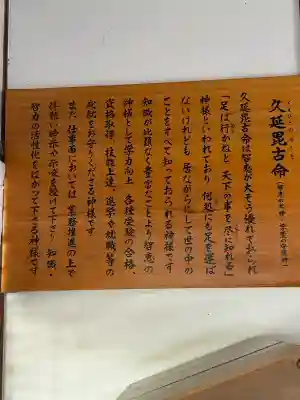 久延毘古命(智恵の大神 学業の守護神)
久延毘古命は智慧が大そう優れておられ
「足は行かねど、天下の事を尽に知れる」
神様といわれており、何処にも足を運ば
ないけれども、居ながらにして世の中の
ことをすべて知っておられる神様です
知識が比類なく豊富なことより智恵の
神様として学力向上、各種受験の合格、
資格取得、技能上達、進学や就職等の
成就をお守りくださる神様です
また、仕事面においては、業務推進の上で
智力の活性化をはかって下さる神様です